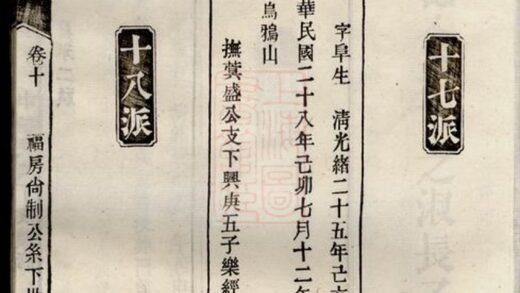 十七派
字阜生 清光緒二十五年己
華民國二十八年己卯七月十二
烏鴉山
撫冀盛公支下興庚五子樂經
十八派
卷十 福房尙制公系下